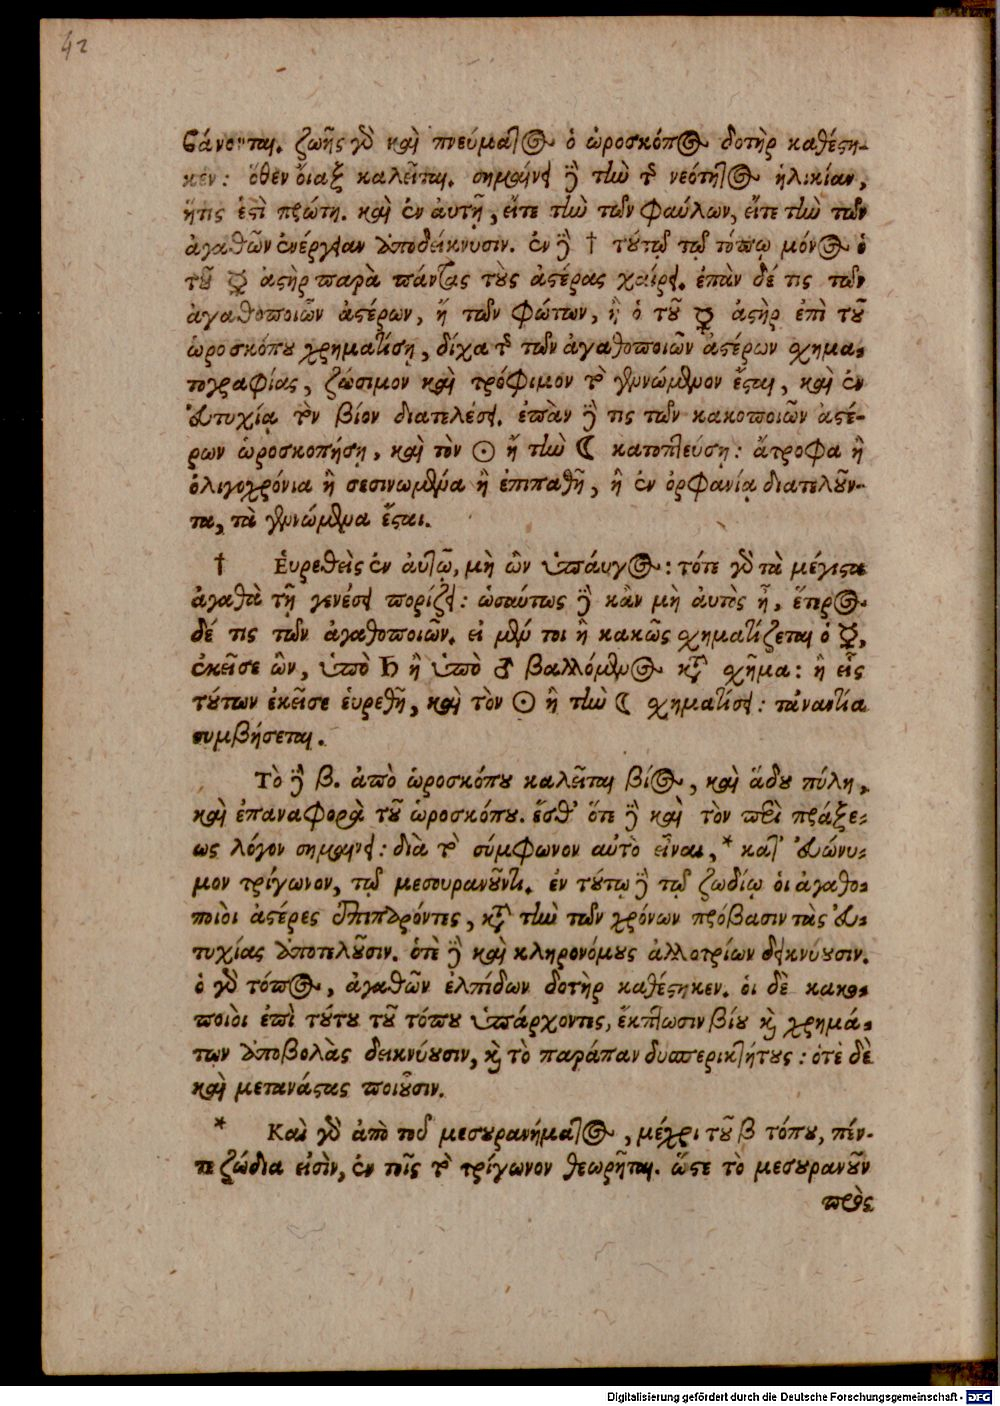 42
βάνονται. ζωῆς γὰρ καὶ πνεύματος ὁ ὡροσκόπος δοτὴρ καθέστη-
κεν: ὅθεν οἴαξ καλεῖται. σημαίνει δὲ τὴν τῆς νεότητος ἡλικίαν,
ἥτις ἐστὶ πρώτη. καὶ ἐν αὐτῇ, εἴτε τὴν τῶν φαύλων, εἴτε τὴν τῶν
ἀγαθῶν ἐνέργειαν ὑποδείκνυσιν. ἐν δὲ † τούτῳ τῷ τόπῳ μόνος ὁ
τοῦ ☿ ἀστὴρ παρὰ πάντας τοὺς ἀστέρας χαίρει. ἐπὰν δέ τις τῶν
ἀγαθοποιῶν ἀστέρων, ἢ τῶν φώτων, ἢ ὁ τοῦ ☿ ἀστὴρ ἐπὶ τοῦ
ὡροσκόπου χρηματίσῃ, δίχα τῆς τῶν ἀγαθοποιῶν ἀστέρων σχημα-
τογραφίας, ζώσιμον καὶ τρόφιμον τὸ γεννώμενον ἔσται, καὶ ἐν
εὐτυχίᾳ τὸν βίον διατελέσει. ἐπὰν δὲ τις τῶν κακοποιῶν ἀστέ-
ρων ὡροσκοπήσῃ, καὶ τὸν ☉ ἢ τὴν ☾ κατοπτεύσῃ: ἄτροφα ἢ
ὀλιγοχρόνια ἢ σεσινωμένα ἢ ἐπιπαθῆ, ἢ ἐν ὀρφανίᾳ διατελοῦν-
τα, τὰ γεννώμενα ἔσται.
† Εὑρεθεὶς ἐν αὐτῷ, μὴ ὢν ὕπαυγος: τότε γὰρ τὰ μέγιστα
ἀγαθὰ τῇ γενέσει πορίζει: ὡσαύτως δὲ κἂν μὴ αὐτὸς ᾖ, ἕτερος
δέ τις τῶν ἀγαθοποιῶν. εἰ μέν τοι ἢ κακῶς σχηματίζεται ὁ ☿,
ἐκεῖσε ὢν, ὑπὸ ♄ ἢ ὑπὸ ♂ βαλλόμενος κατὰ σχῆμα: ἢ εἷς
τούτων ἐκεῖσε εὑρεθῇ, καὶ τὸν ☉ ἢ τὴν ☾ σχηματίσει: τἀναντία
συμβήσεται.
Τὸ δὲ β. ἀπὸ ὡροσκόπου καλεῖται βίος, καὶ ᾅδου πύλη,
καὶ ἐπαναφορὰ τοῦ ὡροσκόπου. ἔσθ' ὅτε δὲ καὶ τὸν περὶ πράξε-
ως λόγον σημαίνει: διὰ τὸ σύμφωνον αὐτὸ εἶναι, * κατ' εὐώνυ-
μον τρίγωνον, τῷ μεσουρανοῦντι. ἐν τούτῳ δὲ τῷ ζωδίῳ οἱ ἀγαθο-
ποιοὶ ἀστέρες ἐπιπαρόντες, κατὰ τὴν τῶν χρόνων πρόβασιν τὰς εὐ-
τυχίας ἀποτελοῦσιν. ὁτὲ δὲ καὶ κληρονόμους ἀλλοτρίων δεικνύουσιν.
ὁ γὰρ τόπος, ἀγαθῶν ἐλπίδων δοτὴρ καθέστηκεν. οἱ δὲ κακο-
ποιοὶ ἐπὶ τούτου τοῦ τόπου ὑπάρχοντες, ἔκπτωσιν βίου καὶ χρημά-
των ἀποβολὰς δεικνύουσιν, καὶ τὸ παράπαν δυσπερικτήτους: ὁτὲ δὲ
καὶ μετανάστας ποιοῦσιν.
* Καὶ γὰρ ἀπὸ τοῦ μεσουρανήματος, μέχρι τοῦ β τόπου, πέν-
τε ζώδια εἰσὶν, ἐν τοῖς τὸ τρίγωνον θεωρῆται. ὥστε τὸ μεσουρανοῦν
πρὸς
Digitalisierung gefördert durch die Deutsche Forschungsgemeinschaft - DFG